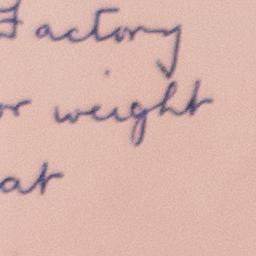 Factory
or weight
at